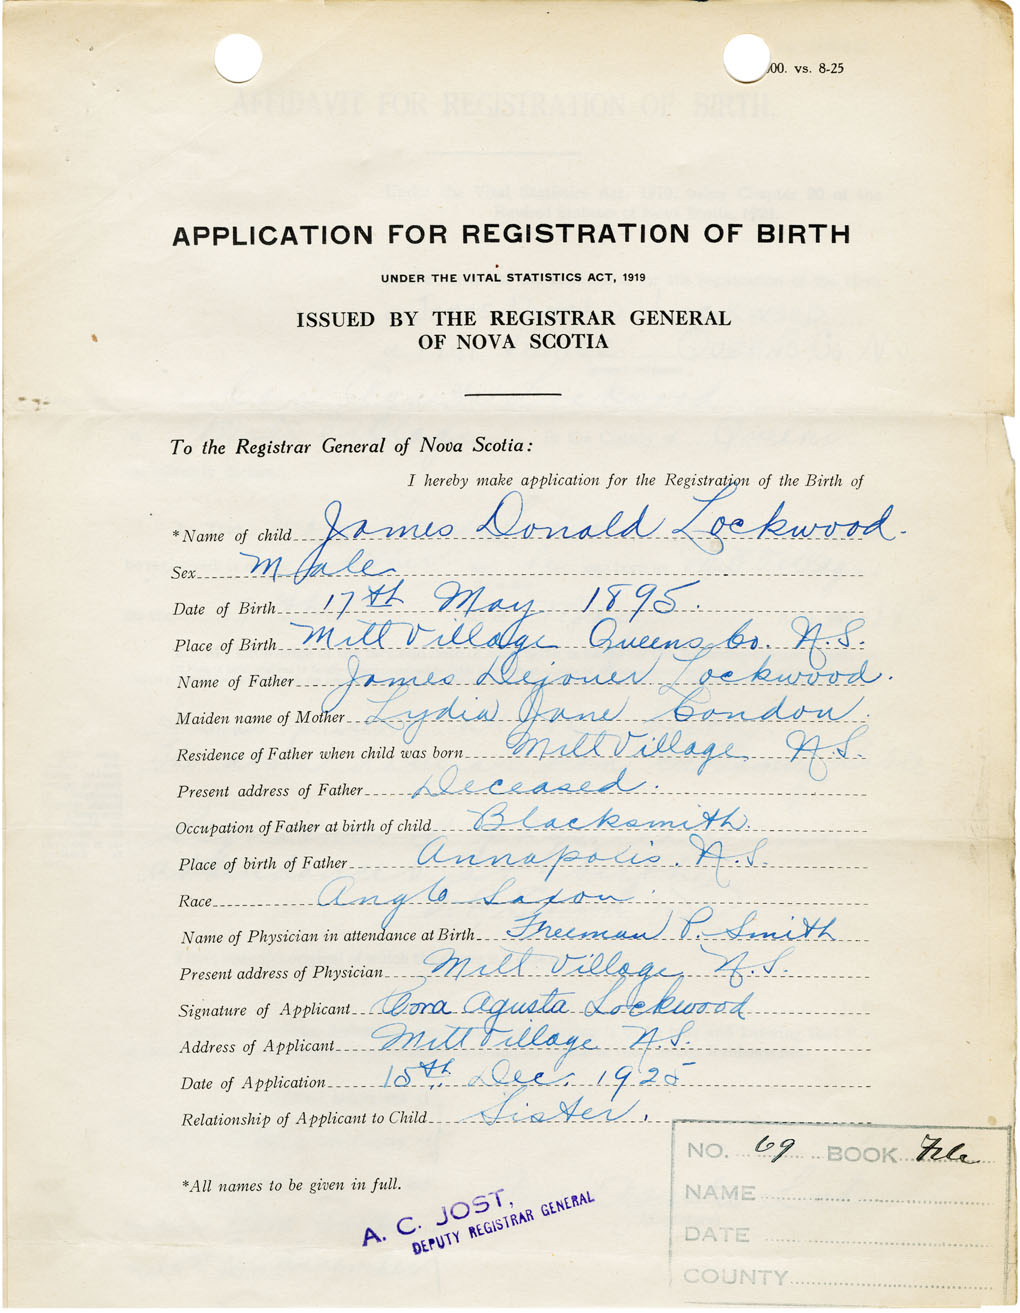 00. vs. 8-25
AFFIDAVIT FOR REGISTRATION OF BIRTH.
APPLICATION FOR REGISTRATION OF BIRTH
UNDER THE VITAL STATISTICS ACT, 1919
ISSUED BY THE REGISTRAR GENERAL
OF NOVA SCOTIA
To the Registrar General of Nova Scotia:
I hereby make application for the Registration of the Birth of
*Name of child James Donald Lockwood.
Sex Male
Date of Birth 17th May 1895.
Place of Birth Mill Village Queens Co. N.S.
Name of Father James Dejoner Lockwood.
Maiden name of Mother Lydia Jane Condon.
Residence of Father when child was born Mill Village N.S.
Present address of Father Deceased.
Occupation of Father at birth of child Blacksmith.
Place of birth of Father Annapolis. N.S.
Race Anglo Saxon.
Name of Physician in attendance at Birth Freeman P. Smith
Present address of Physician Mill Village N.S.
Signature of Applicant Cora Agusta Lockwood
Address of Applicant Mill Village N.S.
Date of Application 15th. Dec. 1925
Relationship of Applicant to Child Sister.
*All names to be given in full.
A. C. JOST,
DEPUTY REGISTRAR GENERAL
NO. 69 BOOK File
NAME
DATE
COUNTY